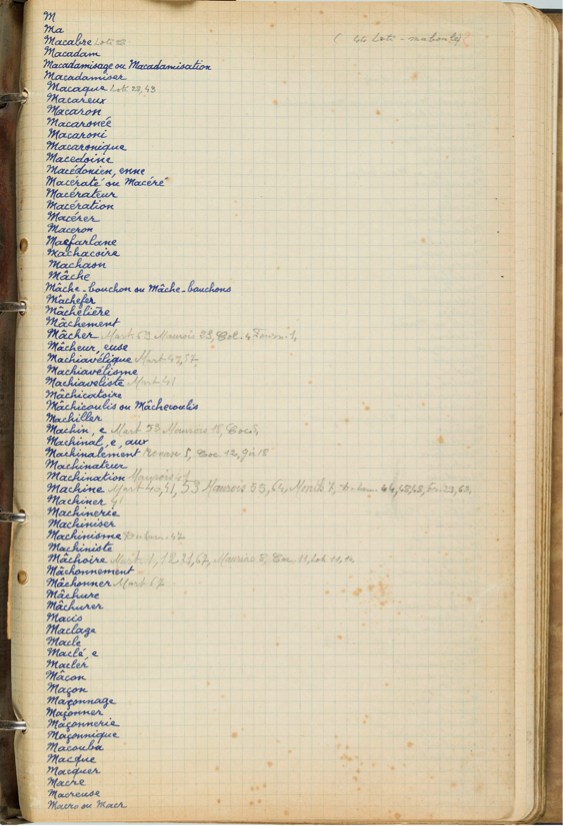 M
Ma
Macabre Loti
Macadam
Macadamisage ou Macadamisation
Macadamiser
Macaque Loti 22, 43
Macareux
Macaron
Macaronée
Macaroni
Macaronique
Macedoine
Macédonien, enne
Macératé ou Macéré
Macérateur
Macération
Macérer
Maceron
Macfarlane
Machacoire
Machaon
Mâche
Mâche-bouchon ou Mâche-bouchons
Mâchefer
Mâchelière
Mâchement
Mâcher Mart 63 Maurois 23,
Mâcheur, euse
Machiavélique Mart 47, 57
Machiavélisme
Machiaveliste Mart 41
Mâchicatoire
Mâchicoulis ou Mâchecoulis
Machiller
Machin, e Mart 53 Maurois 15,
Machinal, e, aux
Machinalement
Machinateur
Machination Maurois
Machine Mart 40, 41, 53 Maurois 35,
Machiner 41
Machinerie
Machiniser
Machinisme
Machiniste
Mâchoire Mart
Mâchonnement
Mâchonner Mart 67
Mâchure
Mâchurer
Macis
Maclage
Macle
Maclé, e
Macler
Mâcon
Maçon
Maçonnage
Maçonner
Maçonnerie
Maçonnique
Macouba
Macque
Macquer
Macre
Macreuse
Macro ou Macr